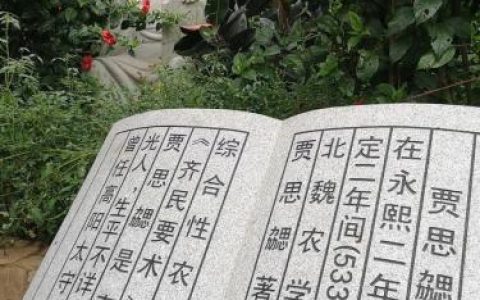 贾思勰
在永熙二年
定二年间(533
北魏农学
贾思勰著
综合性农
《齐民要术
贾思勰,
光人,生平不详
曾任高阳太守